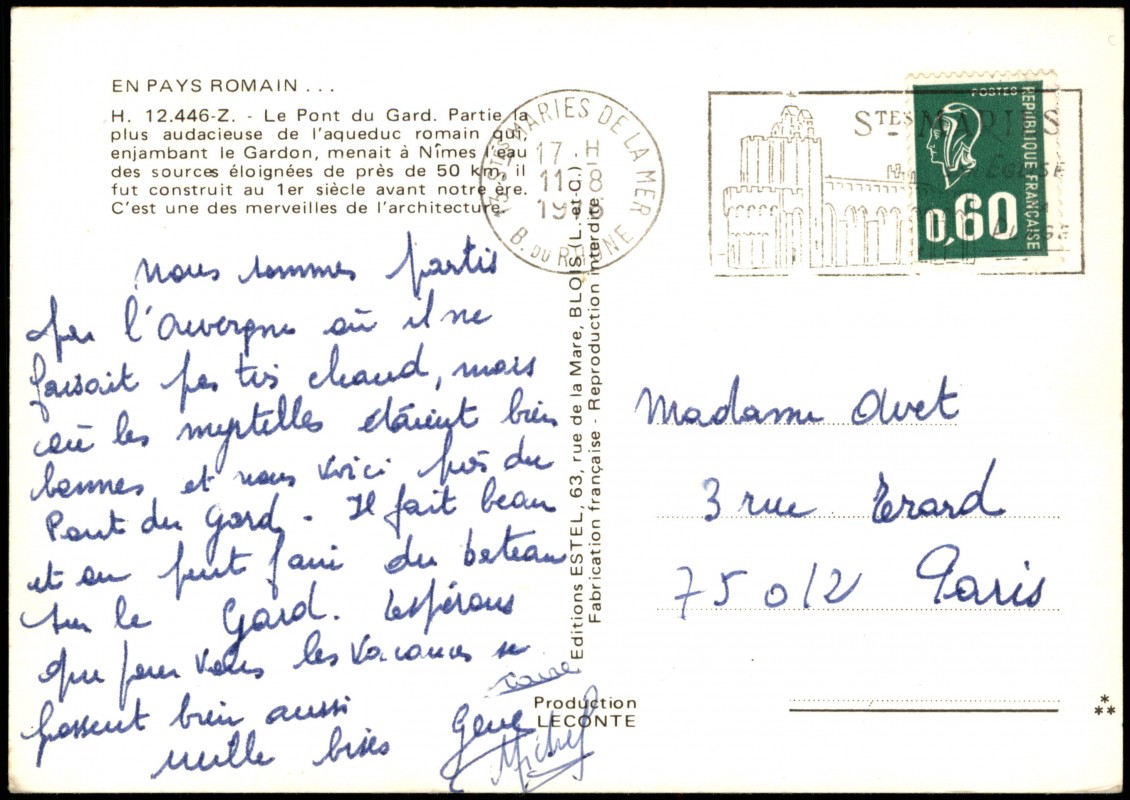 EN PAYS ROMAIN . . .
H. 12.446-Z. - Le Pont du Gard. Partie la
plus audacieuse de l'aqueduc romain qui,
enjambant le Gardon, menait à Nîmes l'eau
des sources éloignées de près de 50 km, il
fut construit au 1er siècle avant notre ère.
C'est une des merveilles de l'architecture.
nous sommes partis
par l'Auvergne où il ne
faisait pas très chaud, mais
où les myrtilles étaient bien
bonnes et nous voici près du
Pont du Gard - Il fait beau
et on peut faire du bateau
sur le Gard. Espérons
que pour vous les vacances se
passent bien aussi
mille bises
Gene
Michel
13 STES MARIES DE LA MER
17 H
11-8
B. DU RHONE
STES MARIES
EGLISE
POSTES
REPUBLIQUE FRANÇAISE
0,60
Editions ESTEL, 63, rue de la Mare, BLOIS (L.-et-C.)
Fabrication française - Reproduction interdite
Madame Avet
3 rue Erard
75012 Paris
Production
LECONTE